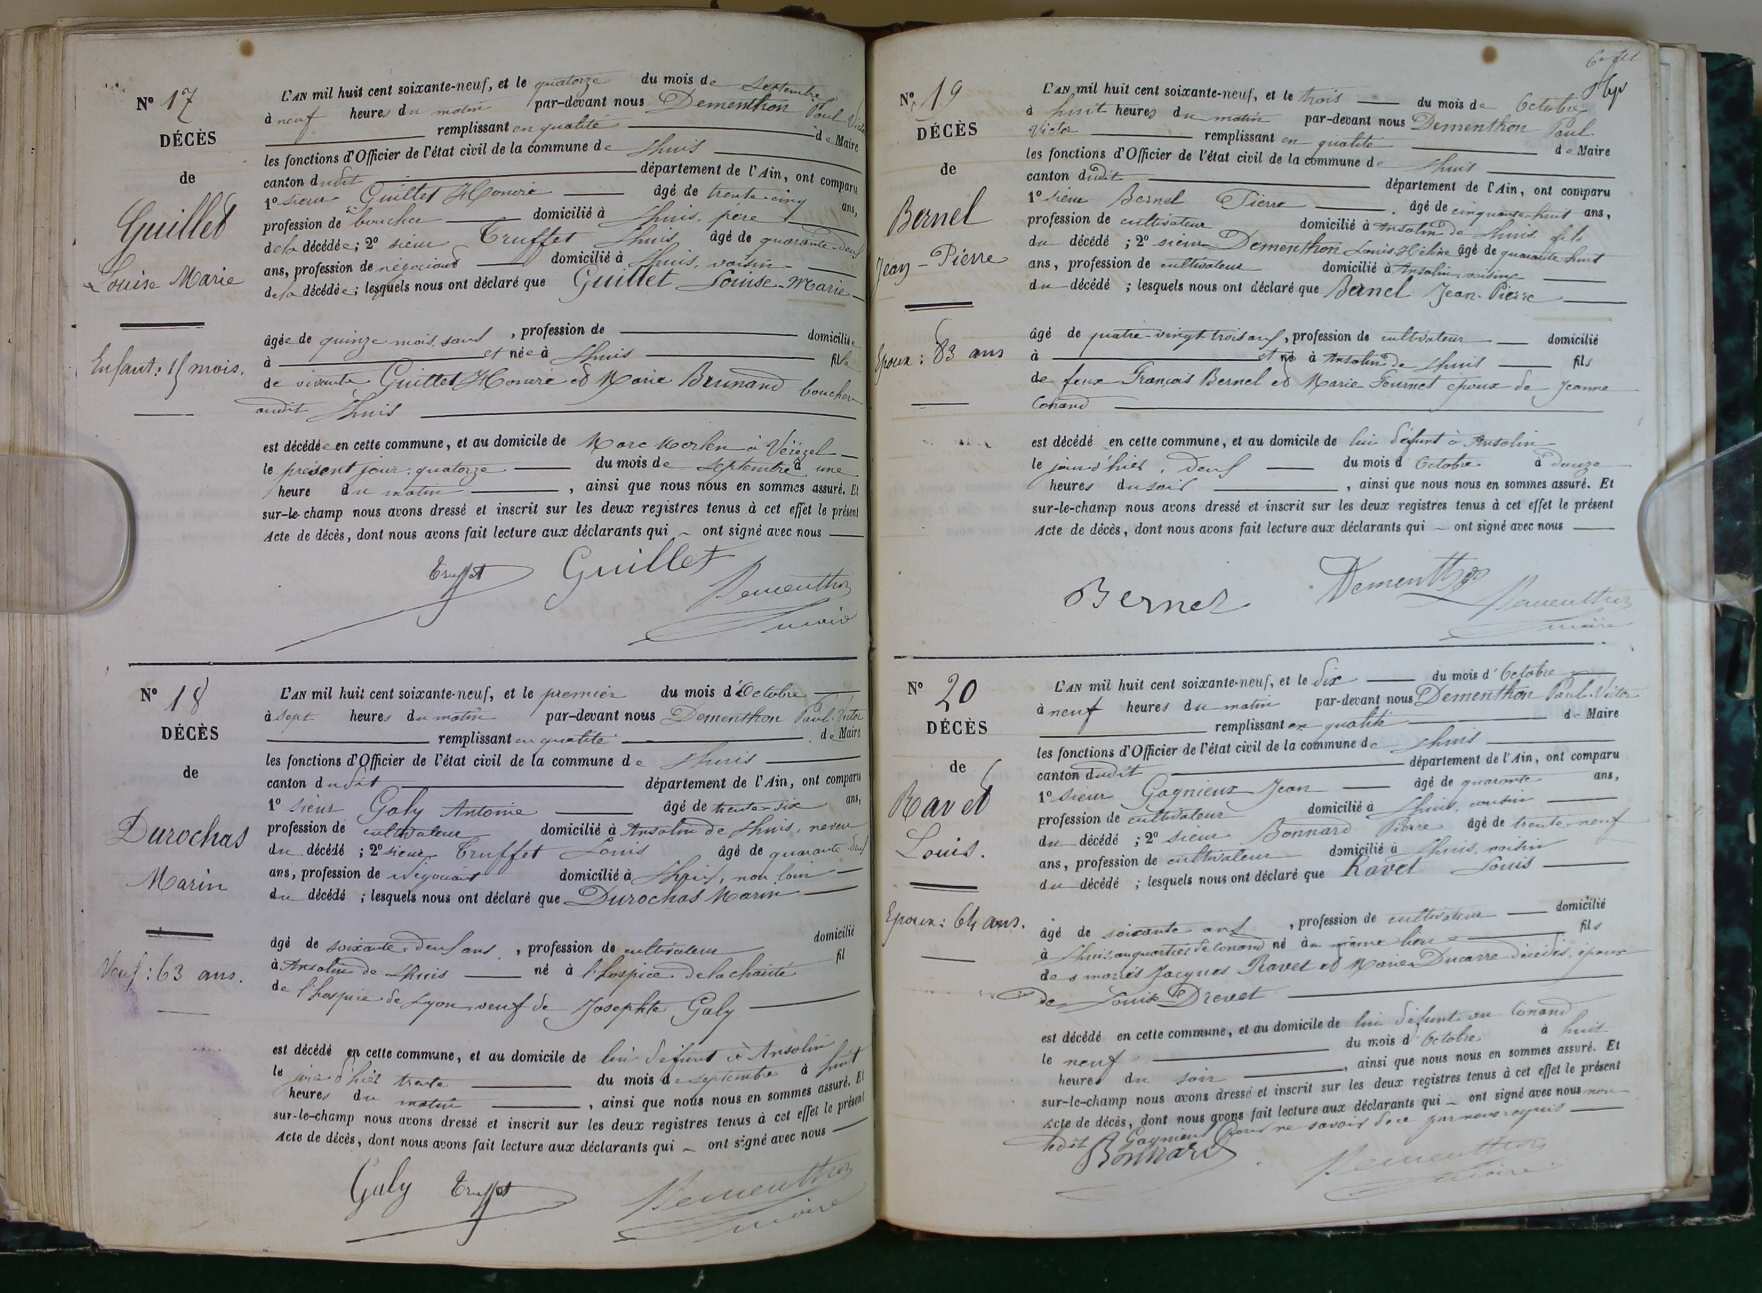 N° 17
DÉCÈS
de
Guillet
Louise Marie
Enfant: 15 mois.
L'AN mil huit cent soixante-neuf, et le quatorze du mois de Septembre
à neuf heures du matin par-devant nous Dementhon Paul Victor
remplissant en qualité de Maire
les fonctions d'Officier de l'état civil de la commune de Lhuis
canton dudit département de l'Ain, ont comparu
1° sieur Guillet Honoré âgé de trente-cinq ans,
profession de boucher domicilié à Lhuis, père
de la décédée; 2° sieur Truffet Louis âgé de quarante-deux
ans, profession de négociant domicilié à Lhuis, voisin
de la décédée; lesquels nous ont déclaré que Guillet Louise-Marie
âgée de quinze mois, sans, profession de domiciliée
à et née à Lhuis fille
de vivants Guillet Honoré et Marie Brunand boucher
audit Lhuis
est décédée en cette commune, et au domicile de Marc à
le présent jour, quatorze du mois de septembre à une
heure du matin, ainsi que nous nous en sommes assuré. Et
sur-le-champ nous avons dressé et inscrit sur les deux registres tenus à cet effet le présent
Acte de décès, dont nous avons fait lecture aux déclarants qui ont signé avec nous
Truffet Guillet Dementhon
maire
N° 18
DÉCÈS
de
Durochas
Marin
Veuf: 63 ans.
L'AN mil huit cent soixante-neuf, et le premier du mois d'Octobre
à sept heures du matin par-devant nous Dementhon Paul-Victor
remplissant en qualité de Maire
les fonctions d'Officier de l'état civil de la commune de Lhuis
canton dudit département de l'Ain, ont comparu
1° sieur Galy Antoine âgé de trente-six ans,
profession de cultivateur domicilié à Ansolin de Lhuis, neveu
du décédé; 2° sieur Truffet Louis âgé de quarante-deux
ans, profession de négociant domicilié à Lhuis, non loin
du décédé; lesquels nous ont déclaré que Durochas Marin
âgé de soixante-deux ans, profession de cultivateur domicilié
à Ansolin de Lhuis né à l'hospice de la charité fil
de l'hospice de Lyon, veuf de Josephte Galy
est décédé en cette commune, et au domicile de lui défunt à Ansolin
le jour d'hier trente du mois de septembre à huit
heures du matin, ainsi que nous nous en sommes assuré. Et
sur-le-champ nous avons dressé et inscrit sur les deux registres tenus à cet effet le présent
Acte de décès, dont nous avons fait lecture aux déclarants qui ont signé avec nous
Galy Truffet Dementhon
maire
N° 19
DÉCÈS
de
Bernel
Jean-Pierre
Epoux: 83 ans
L'AN mil huit cent soixante-neuf, et le trois du mois de Octobre
à huit heures du matin par-devant nous Dementhon Paul
Victor remplissant en qualité de Maire
les fonctions d'Officier de l'état civil de la commune de Lhuis
canton dudit département de l'Ain, ont comparu
1° sieur Bernel Pierre âgé de cinquante-huit ans,
profession de cultivateur domicilié à Ansolin de Lhuis, fils
du décédé; 2° sieur Dementhon Louis Hélène âgé de quarante huit
ans, profession de cultivateur domicilié à Ansolin, voisin
du décédé; lesquels nous ont déclaré que Bernel Jean-Pierre
âgé de quatre-vingt-trois ans, profession de cultivateur domicilié
à et né à Ansolin de Lhuis fils
de feux François Bernel et Marie Fournet époux de Jeanne
Conand
est décédé en cette commune, et au domicile de lui défunt à Ansolin
le jour d'hier, deux du mois d Octobre à douze
heures du soir, ainsi que nous nous en sommes assuré. Et
sur-le-champ nous avons dressé et inscrit sur les deux registres tenus à cet effet le présent
Acte de décès, dont nous avons fait lecture aux déclarants qui ont signé avec nous
Bernel Dementhon Dementhon
maire
N° 20
DÉCÈS
de
Ravet
Louis.
Epoux: 64 ans.
L'AN mil huit cent soixante-neuf, et le dix du mois d'Octobre
à neuf heures du matin par-devant nous Dementhon Paul-Victor
remplissant en qualité de Maire
les fonctions d'Officier de l'état civil de la commune de Lhuis
canton dudit département de l'Ain, ont comparu
1° sieur Gagnieux Jean âgé de quarante ans,
profession de cultivateur domicilié à Lhuis, voisin
du décédé; 2° sieur Bonnard Pierre âgé de trente-neuf
ans, profession de cultivateur domicilié à Lhuis, voisin
du décédé; lesquels nous ont déclaré que Ravet Louis
âgé de soixante ans, profession de cultivateur domicilié
à Lhuis, au quartier de Conand né au même lieu fils
de s mariés Jacques Ravet et Marie Ducarre décédés, époux
de Louise Drevet
est décédé en cette commune, et au domicile de lui défunt au Conand
le neuf du mois d Octobre à huit
heures du soir, ainsi que nous nous en sommes assuré. Et
sur-le-champ nous avons dressé et inscrit sur les deux registres tenus à cet effet le présent
Acte de décès, dont nous avons fait lecture aux déclarants qui ont signé avec nous non
ledit Gagnieux pour ne savoir de ce par nous requis
Bonnard Dementhon
maire